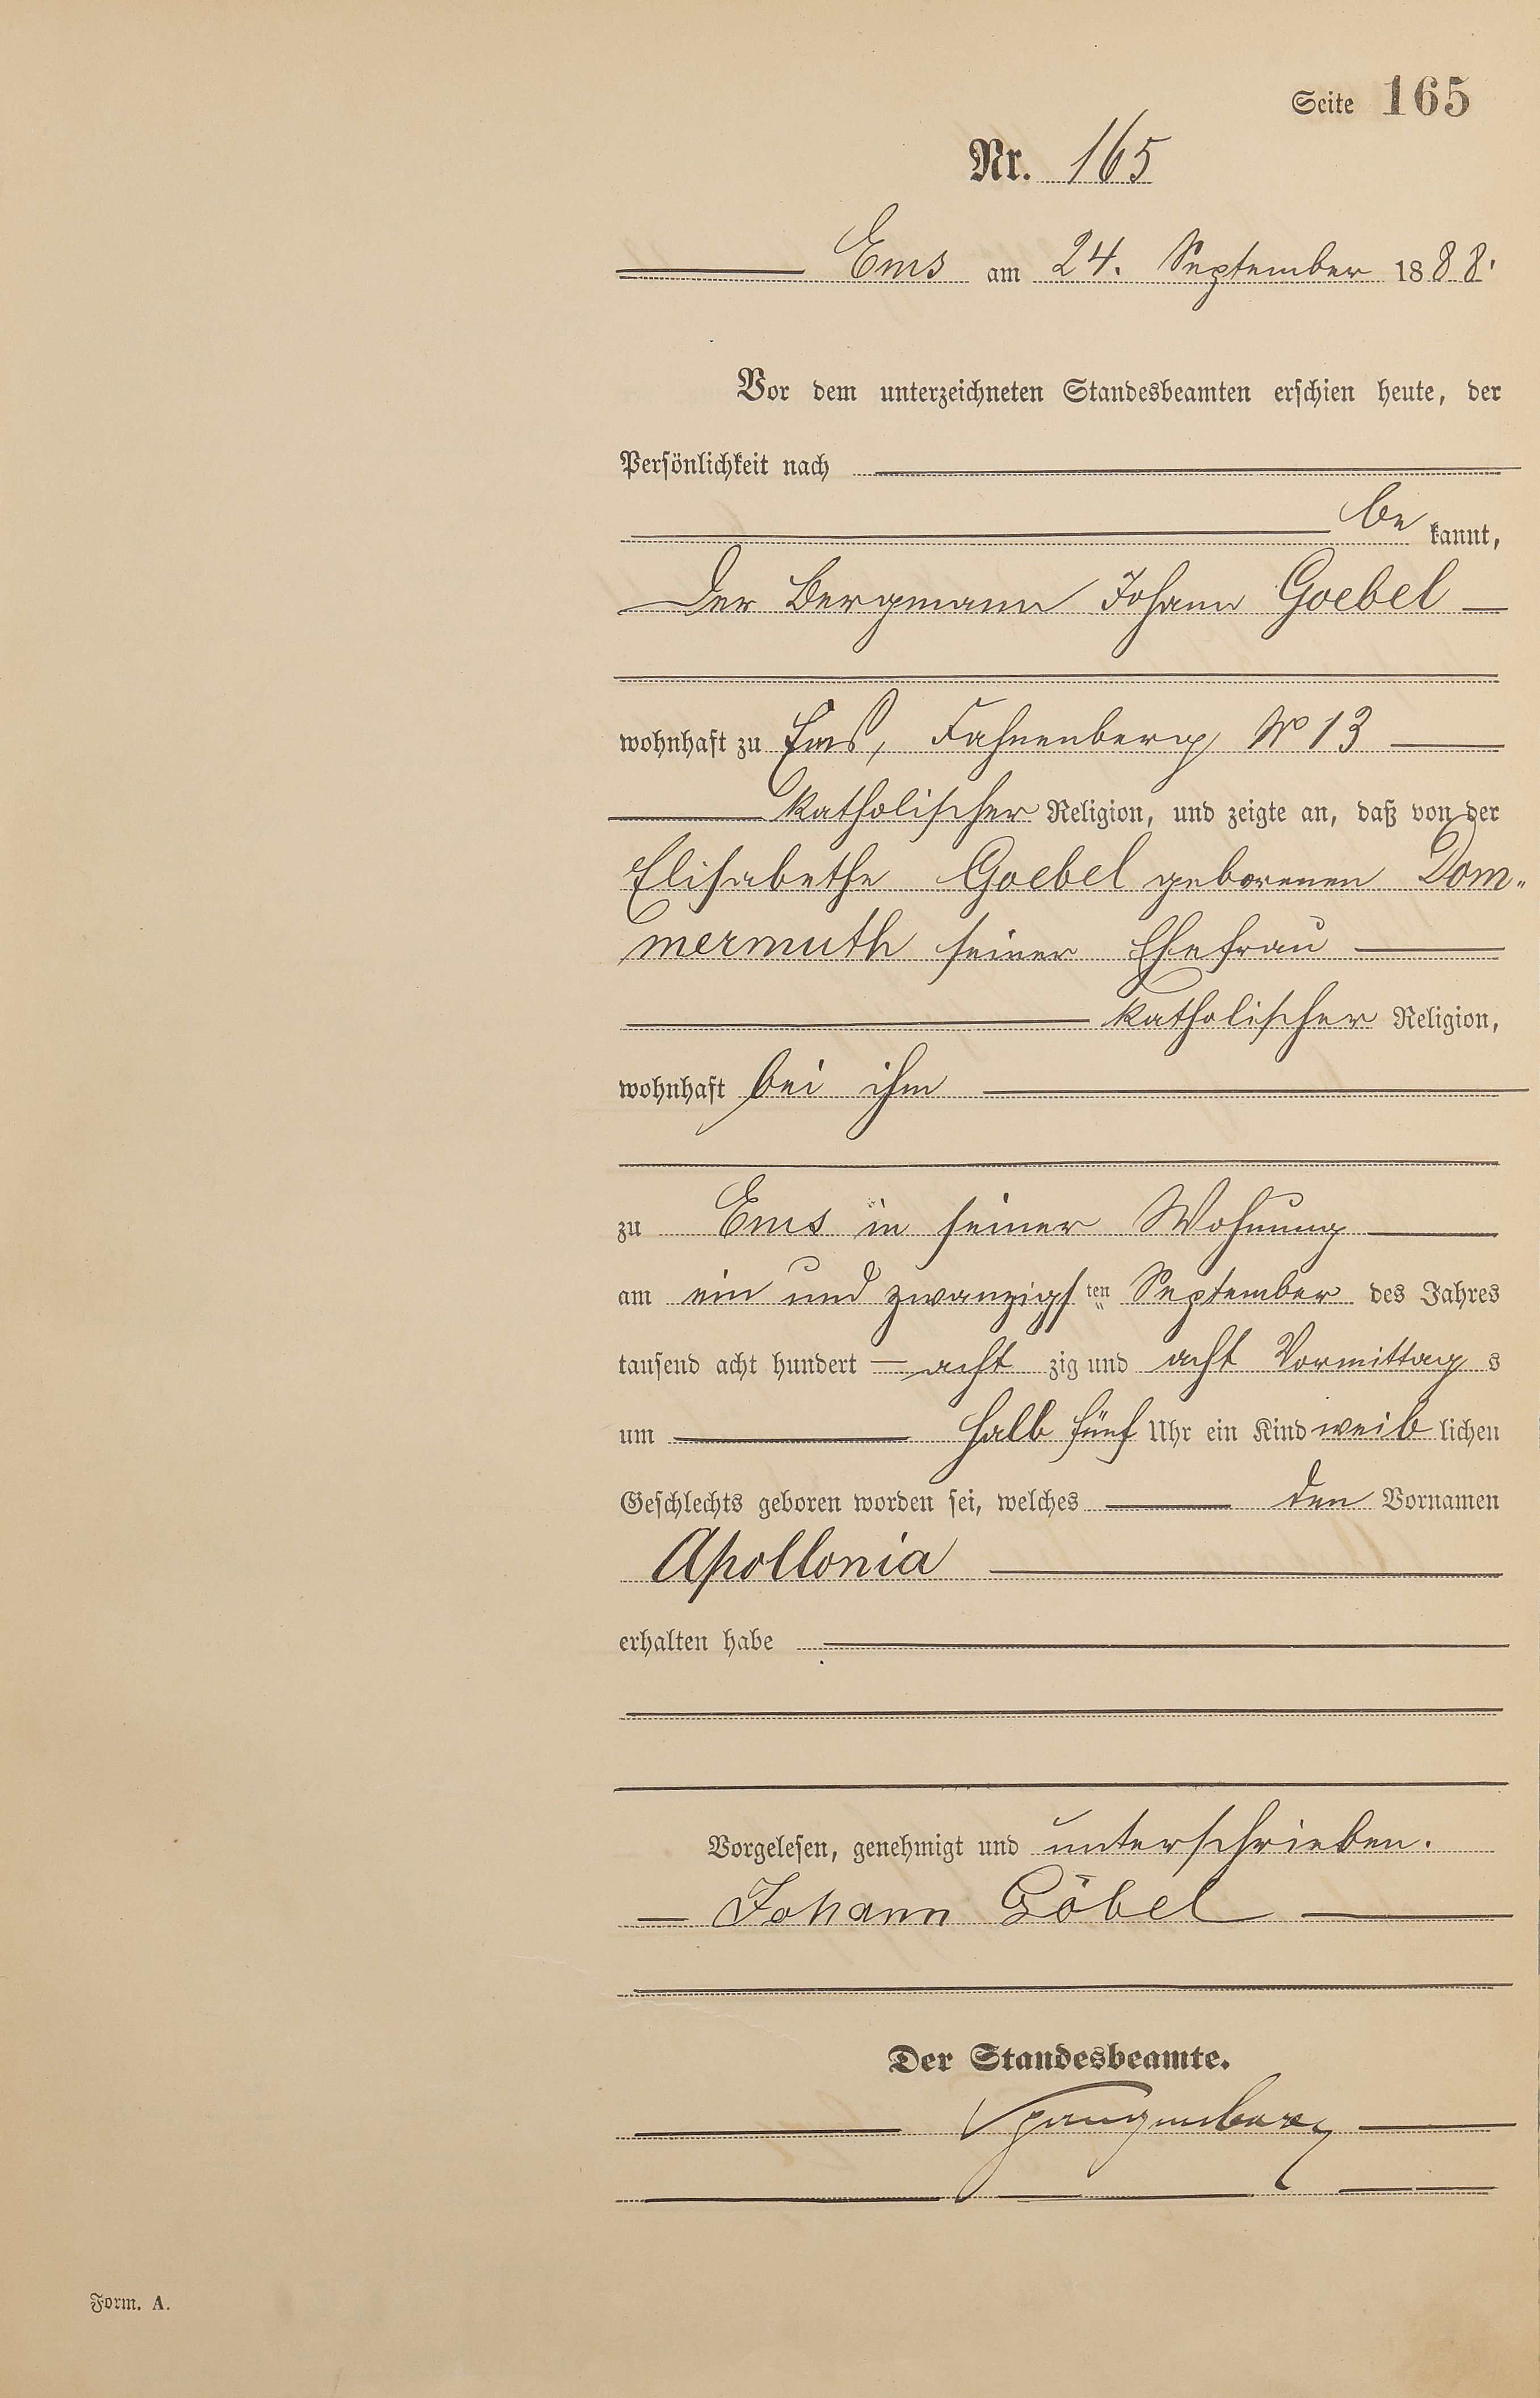 Seite 165
Nr. 165
Ems am 24. September 1888.
Vor dem unterzeichneten Standesbeamten erschien heute, der
Persönlichkeit nach
be kannt,
der Bergmann Johann Goebel
wohnhaft zu Ems, Fahnenberg No 13
katholischer Religion, und zeigte an, daß von der
Elisabethe Goebel geborenen Dom-
mermuth seiner Ehefrau
katholischer Religion,
wohnhaft bei ihm
zu Ems in seiner Wohnung
am ein und zwanzigsten September des Jahres
tausend acht hundert acht zig und acht Vormittag s
um halb fünf Uhr ein Kind weib lichen
Geschlechts geboren worden sei, welches den Vornamen
Apollonia
erhalten habe
Vorgelesen, genehmigt und unterschrieben.
Johann Göbel
Der Standesbeamte.
Form. A.